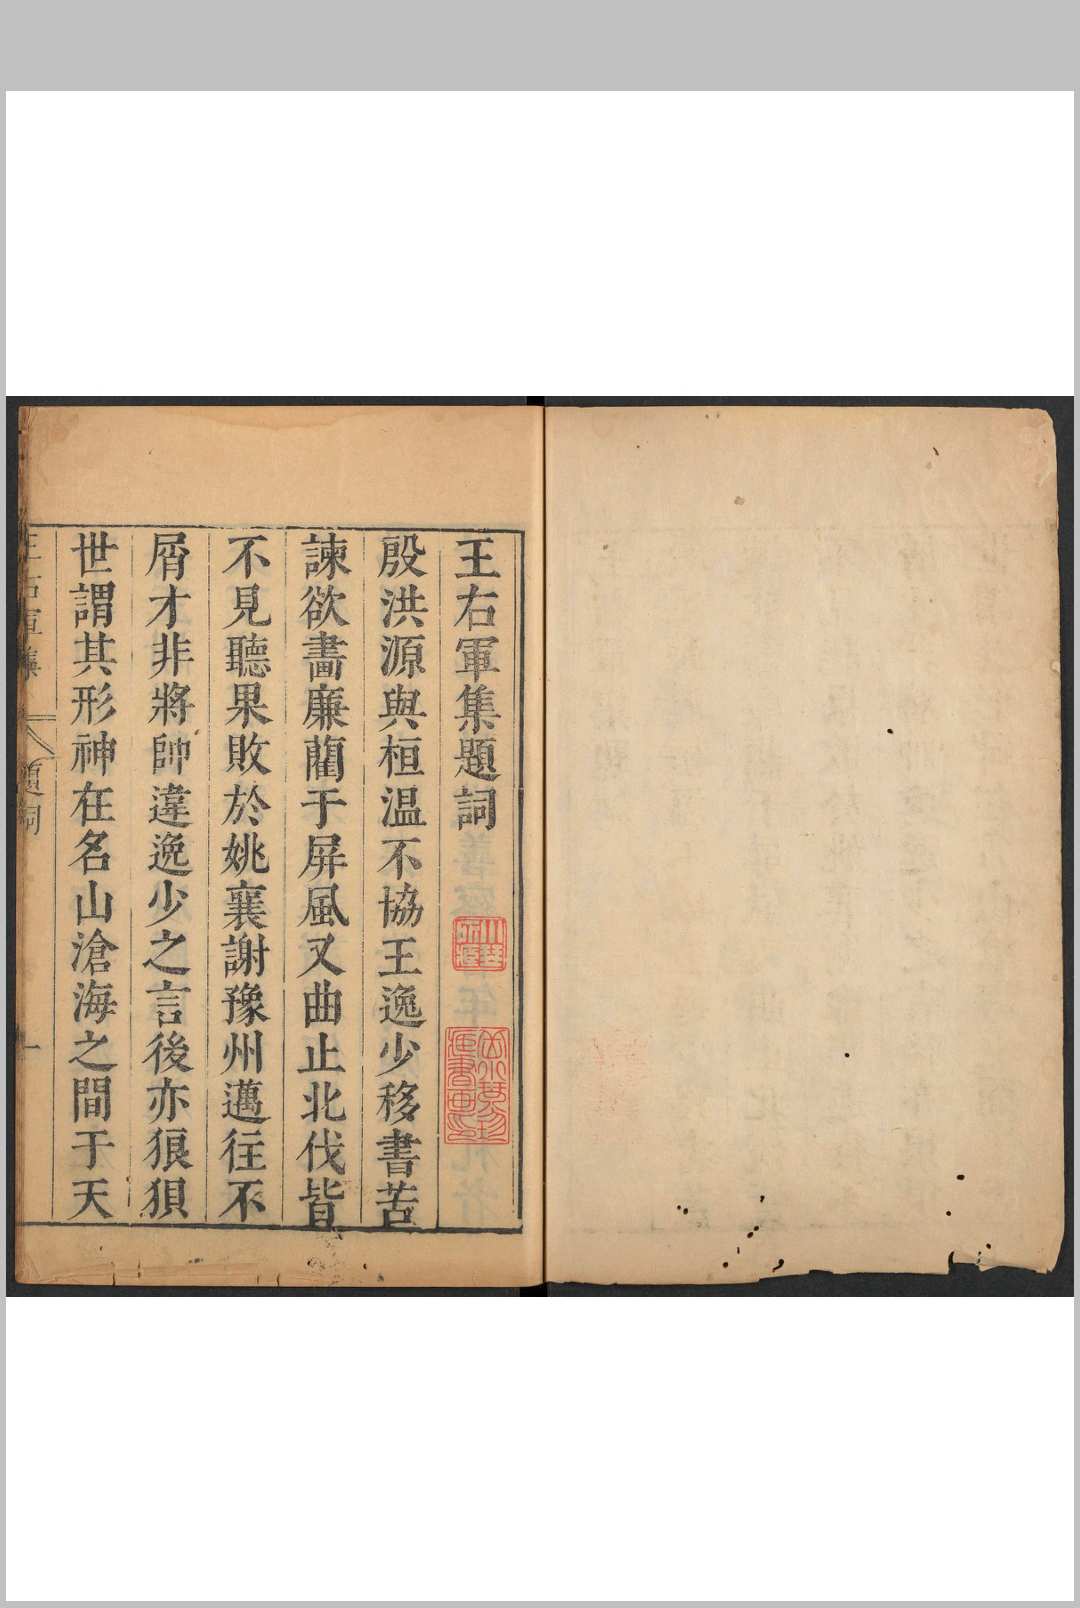 王右軍集題詞
殷洪源與桓温不協王逸少移書苦
諫欲畵廉藺于屏風又曲止北伐皆
不見聽果敗於姚襄謝豫州邁往不
屑才非將帥違逸少之言後亦狼狽
世謂其形神在名山滄海之間于天
王右軍集
題詞
一